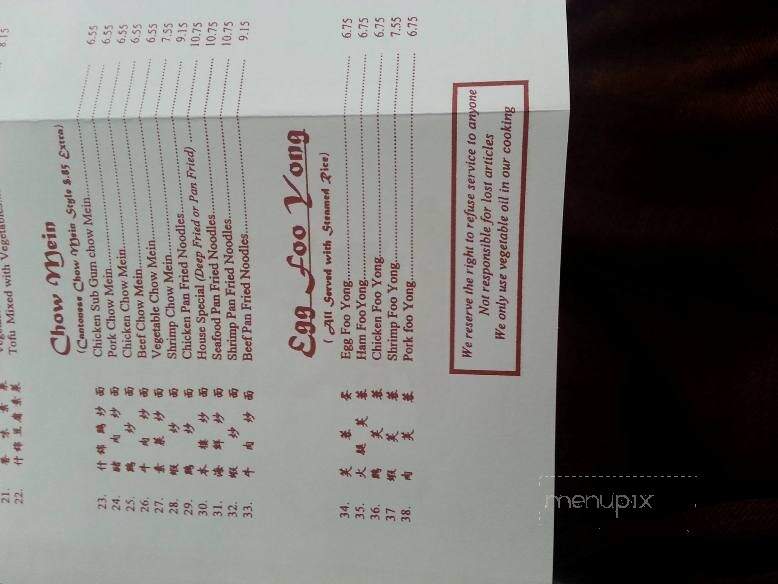 21.
22. 什錦豆腐素菜 Tofu Mixed with Vegetables 8.15
Chow Mein
(Cantonese Chow Mein Style $.85 Extra)
23. 什錦鷄炒面 Chicken Sub Gum chow Mein 6.55
24. 豬肉炒面 Pork Chow Mein 6.55
25. 鷄炒面 Chicken Chow Mein 6.55
26. 牛肉炒面 Beef Chow Mein 6.55
27. 素菜炒面 Vegetable Chow Mein 6.55
28. 蝦炒面 Shrimp Chow Mein 7.55
29. 鷄炒面 Chicken Pan Fried Noodles 9.15
30. 本樓炒面 House Special (Deep Fried or Pan Fried) 10.75
31. 海鮮炒面 Seafood Pan Fried Noodles 10.75
32. 蝦炒面 Shrimp Pan Fried Noodles 10.75
33. 牛肉炒面 Beef Pan Fried Noodles 9.15
Egg Foo Yong
( All Served with Steamed Rice)
34. 芙蓉蛋 Egg Foo Yong 6.75
35. 火腿芙蓉 Ham FooYong 6.75
36. 鷄芙蓉 Chicken Foo Yong 6.75
37 蝦芙蓉 Shrimp Foo Yong 7.55
38. 肉芙蓉 Pork foo Yong 6.75
We reserve the right to refuse service to anyone
Not responsible for lost articles
We only use vegetable oil in our cooking
menupix